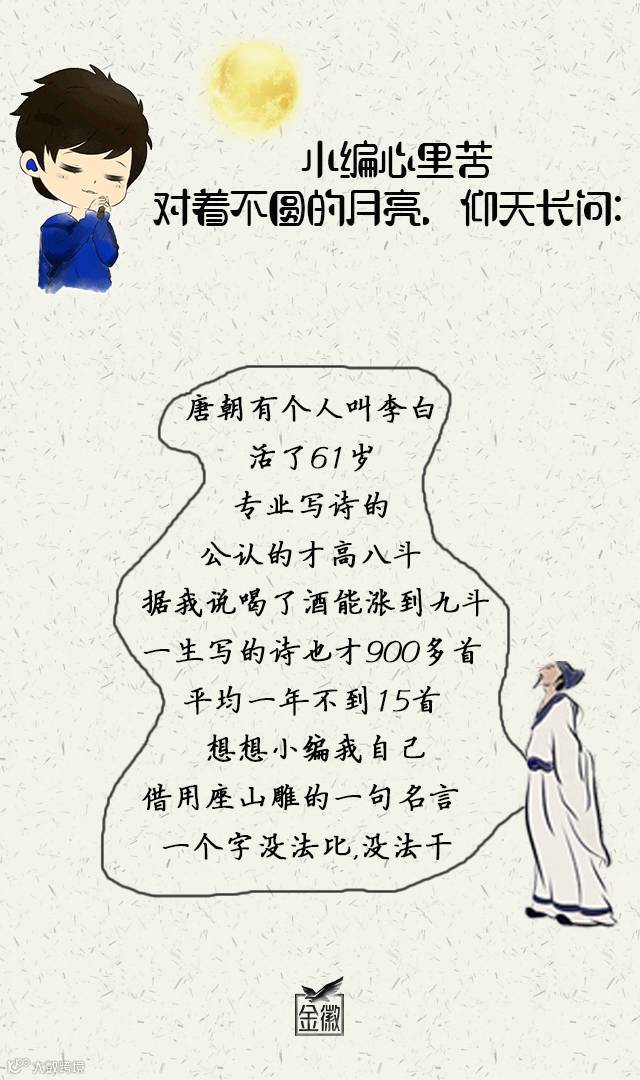 小编心里苦
对着不圆的月亮，仰天长问：
唐朝有个人叫李白
活了61岁
专业写诗的
公认的才高八斗
据我说喝了酒能涨到九斗
一生写的诗也才900多首
平均一年不到15首
想想小编我自己
借用座山雕的一句名言
一个字没法比,没法干
金徽
大数跨境